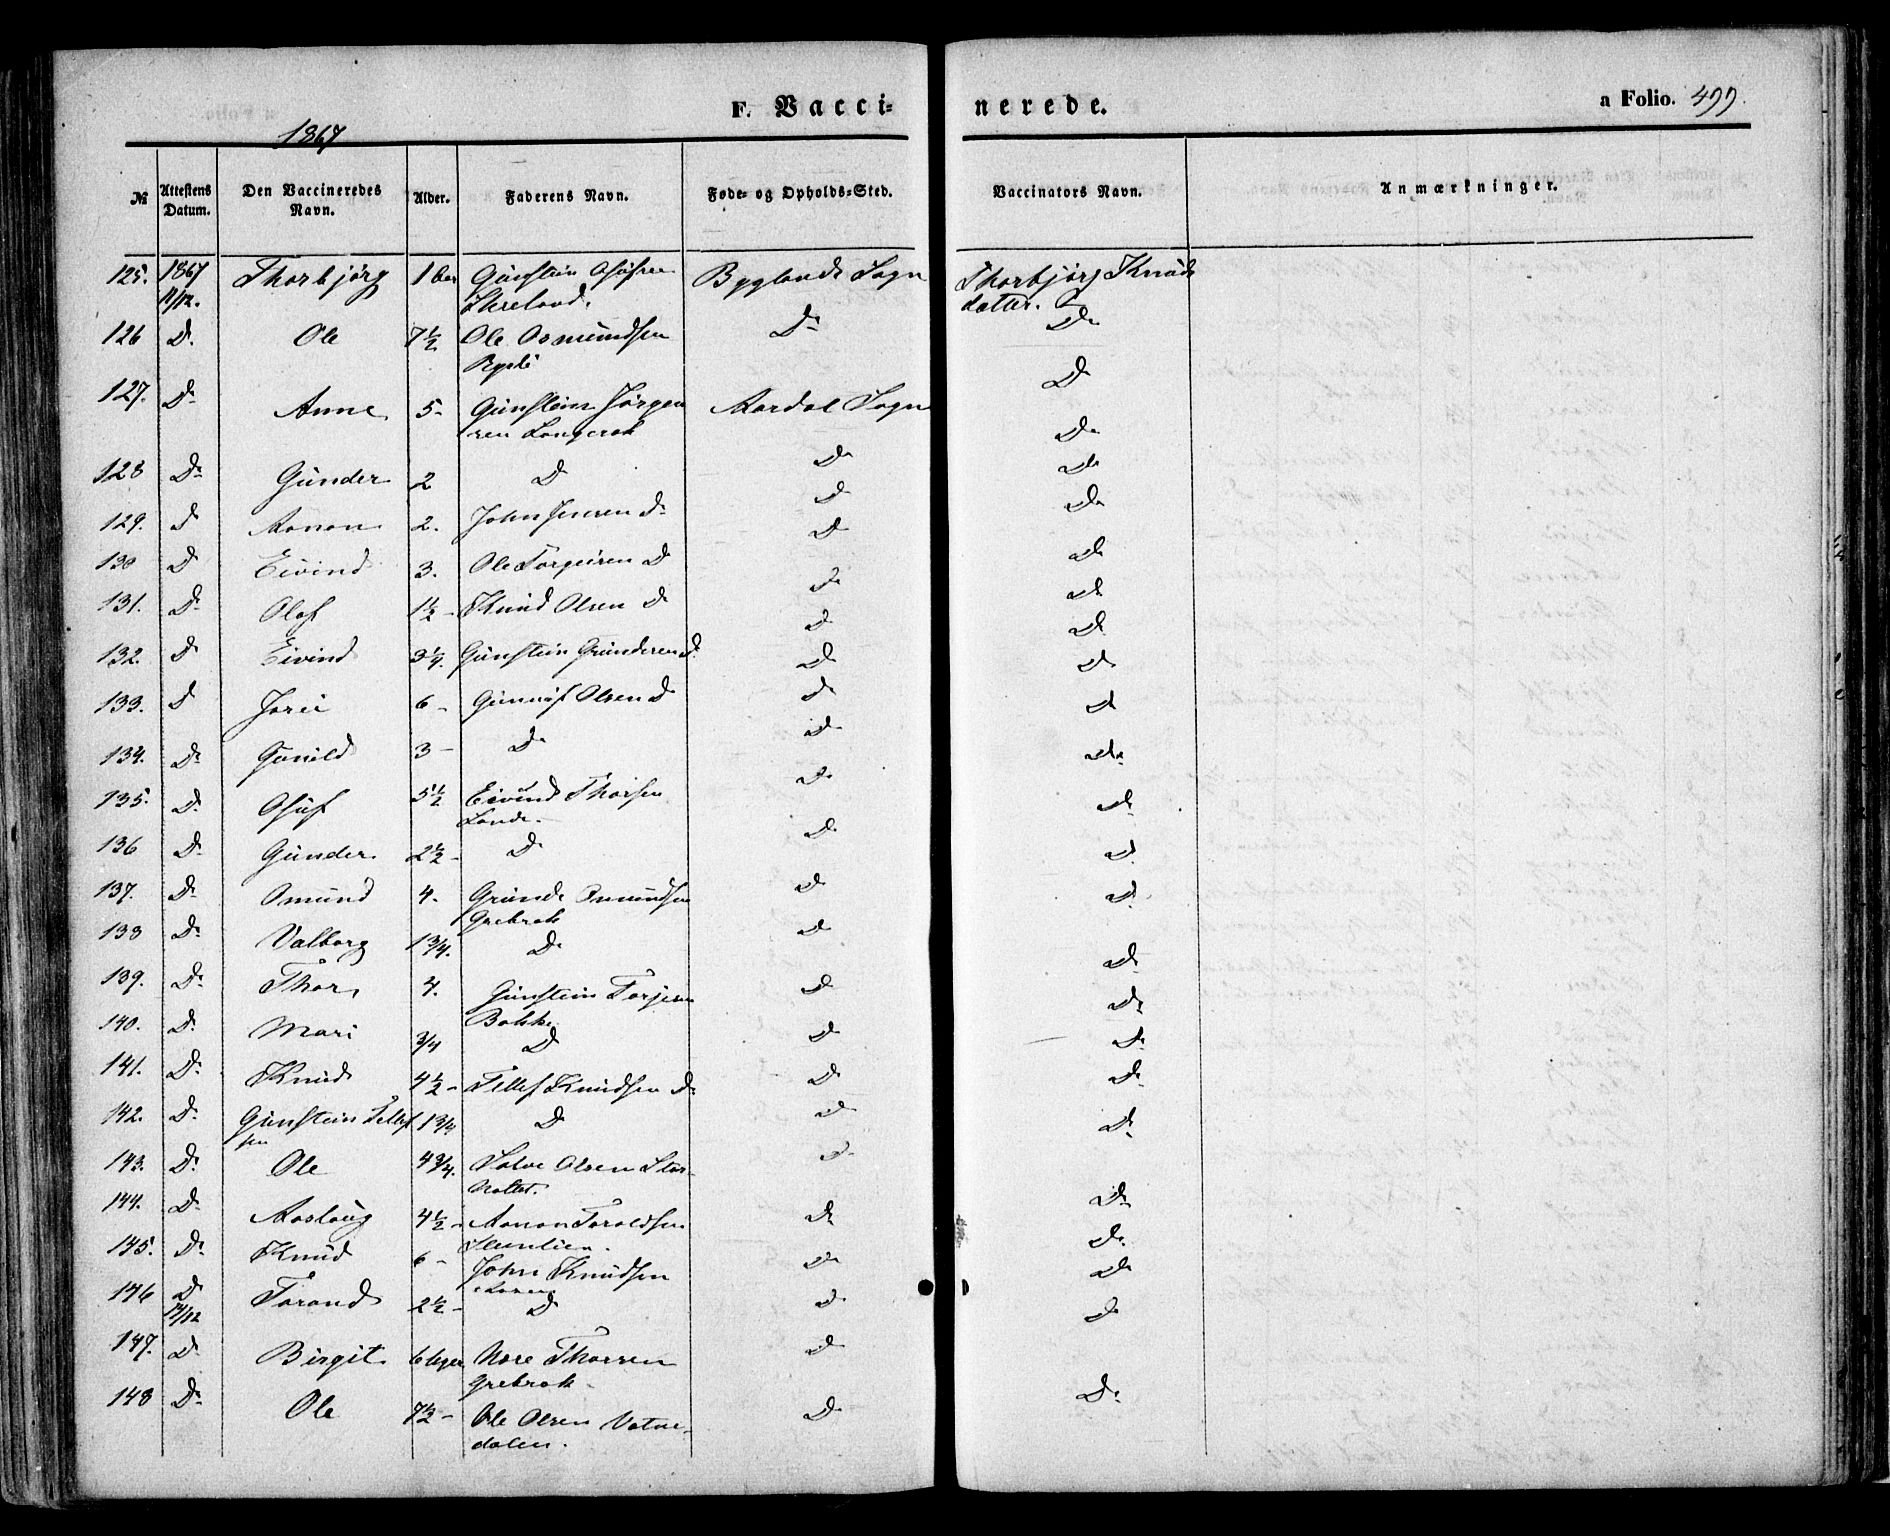 F. Vacci- nerede. a Folio. 499.
1867
№ Attestens Datum. Den Vaccineredes Navn. Alder. Faderens Navn. Føde- og Opholds-Sted. Vaccinators Navn. Anmærkninger.
125. 1867 Thorbjørg 1 Gunstein Byglands Sogn Thorbjørg Knuds
11/12. Skreland. datter.
126 D. Ole 7½ Ole Osmundsen D. D.
127. D. Anne 5- Gunstein Jørgen Aardal Sogn D.
sen Langerak
128 D. Gunder 2 D D D.
129. D Aanon 2. John Jensen D. D D.
130 D Eivind 3. Ole Torgusen D D D.
131. D. Olaf 1½- Knud Olsen D D D.
132. D Eivind 3¼. Gunstein Gundersen D. D D
133. D Jorii 6- Gunnuf Olsen D D D
134. D. Gunild 3- D. D D
135. D. Asuf 5½ Eivind Thorsen D D.
Lande.
136 D. Gunder 2½- D. D D
137. D. Osmund 4. Grunde Osmundsen D D
Grebrok
138 D. Valborg 1¾. D. D D.
139. D. Thor 4. Gunstein Torjesen D D.
Bakke
140. D. Mari ¾ D D D.
141. D. Knud 4½- Tellef Knudsen D. D D.
142. D. Gunstein Tellef 1¾ D D D.
sen
143. D. Ole 4¾. Salve Olsen Stor- D D.
144. D. Aaslaug 4½- Aanon Taraldsen D D.
145. D. Knud 6- John Knudsen D D.
146 D Torand 2½- D D D
14/12
147. D. Birgit 6 Uger Nore Thorsen D D
Grebrok
148 D. Ole 7½- Ole Olsen Vatne- D D.
dalen.